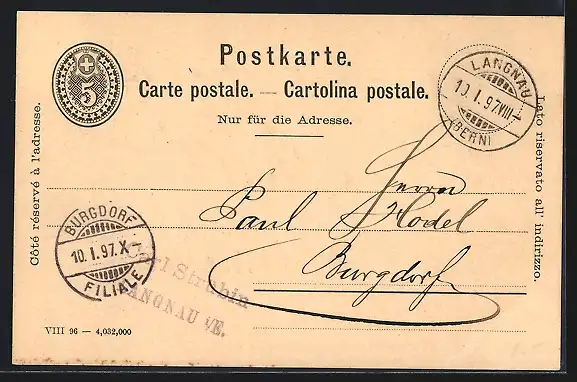 Postkarte.
Carte postale. — Cartolina postale.
Nur für die Adresse.
5
LANGNAU
10.I.97.VIII-
(BERN)
Côté réservé à l'adresse.
Lato riservato all' indirizzo.
Herrn
Paul Hodel
Burgdorf
BURGDORF
10.I.97.X
FILIALE
Carl Strübin
LANGNAU i/E.
VIII 96 — 4,032,000